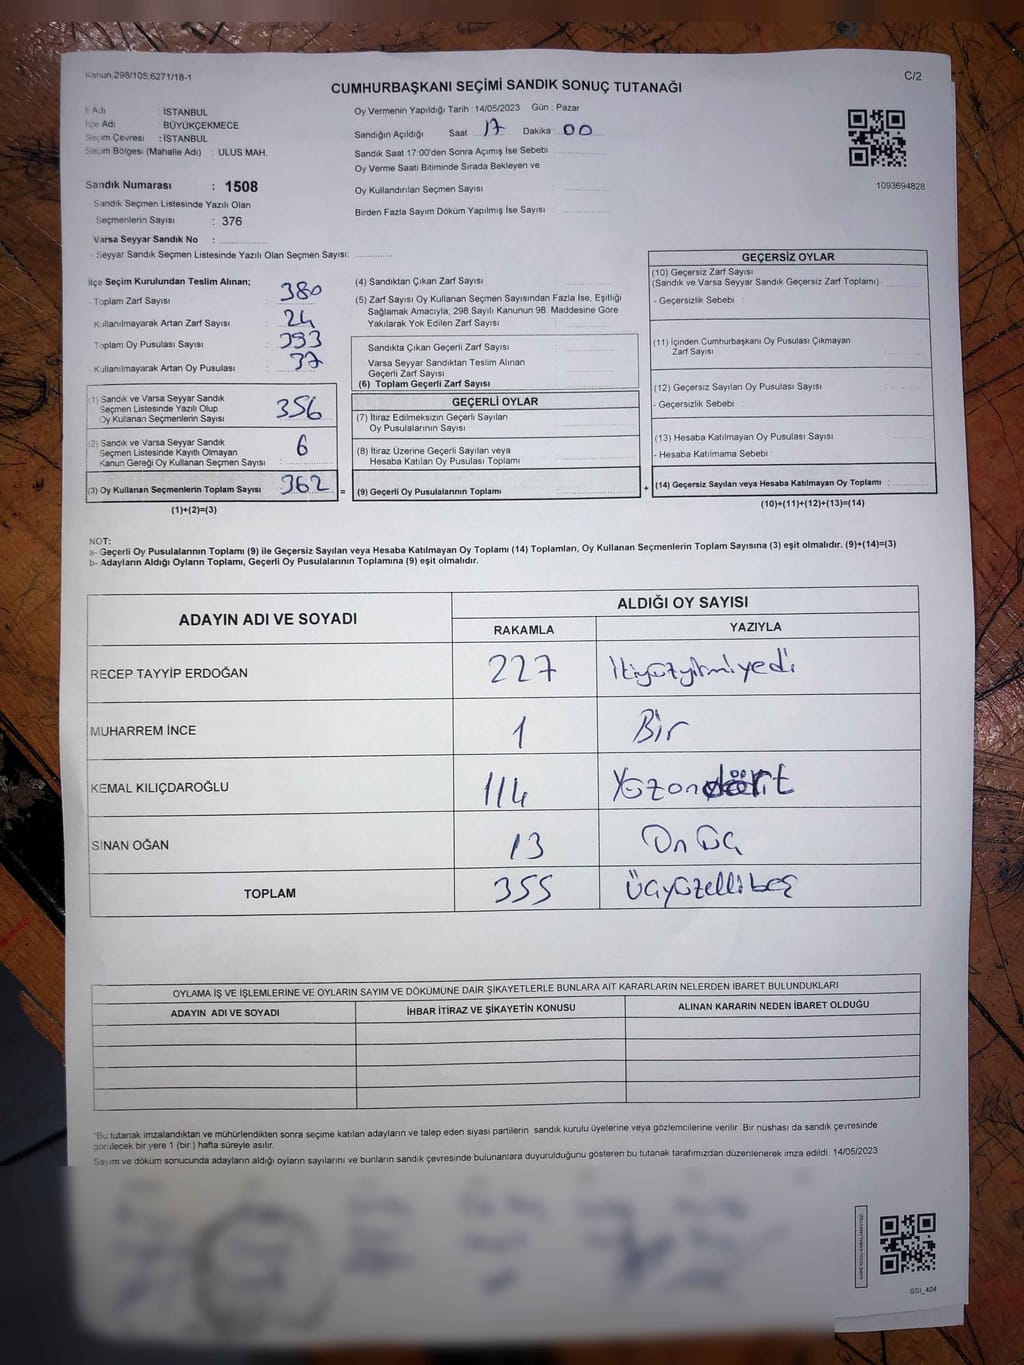 Kanun,298/105,6271/18-1
C/2
CUMHURBAŞKANI SEÇİMİ SANDIK SONUÇ TUTANAĞI
İl Adı : İSTANBUL
İlçe Adı : BÜYÜKÇEKMECE
Seçim Çevresi : İSTANBUL
Seçim Bölgesi (Mahalle Adı) : ULUS MAH.
Sandık Numarası : 1508
Sandık Seçmen Listesinde Yazılı Olan
Seçmenlerin Sayısı : 376
Varsa Seyyar Sandık No :
Seyyar Sandık Seçmen Listesinde Yazılı Olan Seçmen Sayısı:
Oy Vermenin Yapıldığı Tarih : 14/05/2023 Gün : Pazar
Sandığın Açıldığı Saat 17 Dakika : 00
Sandık Saat 17:00'den Sonra Açımış İse Sebebi :
Oy Verme Saati Bitiminde Sırada Bekleyen ve
Oy Kullandırılan Seçmen Sayısı
Birden Fazla Sayım Döküm Yapılmış İse Sayısı :
1093694828
İlçe Seçim Kurulundan Teslim Alınan;
- Toplam Zarf Sayısı : 380
- Kullanılmayarak Artan Zarf Sayısı : 24
- Toplam Oy Pusulası Sayısı : 393
- Kullanılmayarak Artan Oy Pusulası : 37
(1) Sandık ve Varsa Seyyar Sandık
Seçmen Listesinde Yazılı Olup
Oy Kullanan Seçmenlerin Sayısı 356
(2) Sandık ve Varsa Seyyar Sandık
Seçmen Listesinde Kayıtlı Olmayan
Kanun Gereği Oy Kullanan Seçmen Sayısı 6
(3) Oy Kullanan Seçmenlerin Toplam Sayısı 362
(1)+(2)=(3)
=
(4) Sandıktan Çıkan Zarf Sayısı
(5) Zarf Sayısı Oy Kullanan Seçmen Sayısından Fazla İse, Eşitliği
Sağlamak Amacıyla; 298 Sayılı Kanunun 98. Maddesine Göre
Yakılarak Yok Edilen Zarf Sayısı
Sandıkta Çıkan Geçerli Zarf Sayısı
Varsa Seyyar Sandıktan Teslim Alınan
Geçerli Zarf Sayısı
(6) Toplam Geçerli Zarf Sayısı
GEÇERLİ OYLAR
(7) İtiraz Edilmeksizin Geçerli Sayılan
Oy Pusulalarının Sayısı
(8) İtiraz Üzerine Geçerli Sayılan veya
Hesaba Katılan Oy Pusulası Toplamı
(9) Geçerli Oy Pusulalarının Toplamı
+
GEÇERSİZ OYLAR
(10) Geçersiz Zarf Sayısı
(Sandık ve Varsa Seyyar Sandık Geçersiz Zarf Toplamı) :
- Geçersizlik Sebebi :
(11) İçinden Cumhurbaşkanı Oy Pusulası Çıkmayan
Zarf Sayısı
(12) Geçersiz Sayılan Oy Pusulası Sayısı
- Geçersizlik Sebebi :
(13) Hesaba Katılmayan Oy Pusulası Sayısı
- Hesaba Katılmama Sebebi :
(14) Geçersiz Sayılan veya Hesaba Katılmayan Oy Toplamı :
(10)+(11)+(12)+(13)=(14)
NOT:
a- Geçerli Oy Pusulalarının Toplamı (9) ile Geçersiz Sayılan veya Hesaba Katılmayan Oy Toplamı (14) Toplamları, Oy Kullanan Seçmenlerin Toplam Sayısına (3) eşit olmalıdır. (9)+(14)=(3)
b- Adayların Aldığı Oyların Toplamı, Geçerli Oy Pusulalarının Toplamına (9) eşit olmalıdır.
ADAYIN ADI VE SOYADI
ALDIĞI OY SAYISI
RAKAMLA YAZIYLA
RECEP TAYYİP ERDOĞAN 227 İkiyüzyirmiyedi
MUHARREM İNCE 1 Bir
KEMAL KILIÇDAROĞLU 114 Yüzondört
SİNAN OĞAN 13 On üç
TOPLAM 355 üçyüzellibeş
OYLAMA İŞ VE İŞLEMLERİNE VE OYLARIN SAYIM VE DÖKÜMÜNE DAİR ŞİKAYETLERLE BUNLARA AİT KARARLARIN NELERDEN İBARET BULUNDUKLARI
ADAYIN ADI VE SOYADI İHBAR İTİRAZ VE ŞİKAYETİN KONUSU ALINAN KARARIN NEDEN İBARET OLDUĞU
*Bu tutanak imzalandıktan ve mühürlendikten sonra seçime katılan adayların ve talep eden siyasi partilerin sandık kurulu üyelerine veya gözlemcilerine verilir. Bir nüshası da sandık çevresinde
görülecek bir yere 1 (bir) hafta süreyle asılır.
Sayım ve döküm sonucunda adayların aldığı oyların sayılarını ve bunların sandık çevresinde bulunanlara duyurulduğunu gösteren bu tutanak tarafımızdan düzenlenerek imza edildi. 14/05/2023
SSI_404